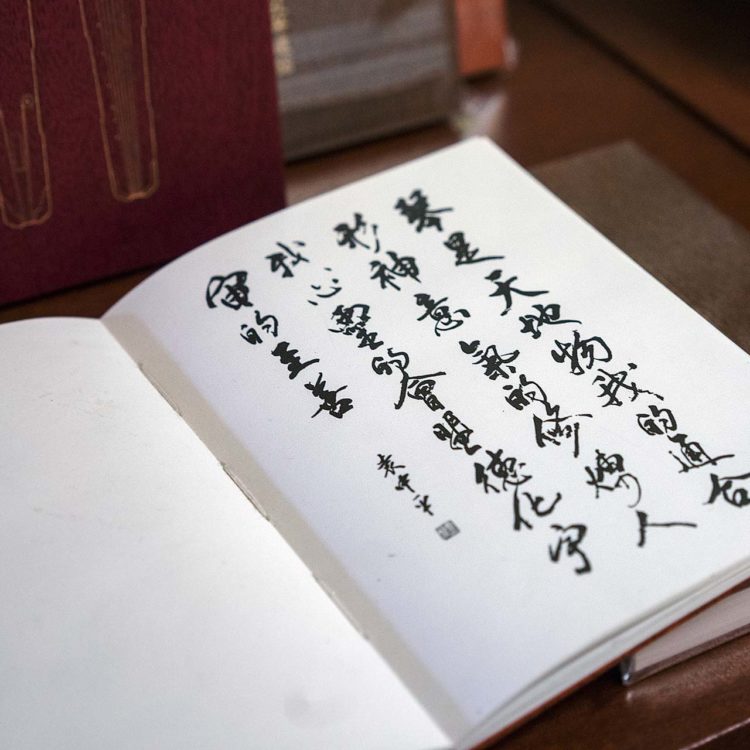 琴是天地物我的通合
形神意氣的修煉人
我心靈的會盟德化宇
宙的至善
袁中平